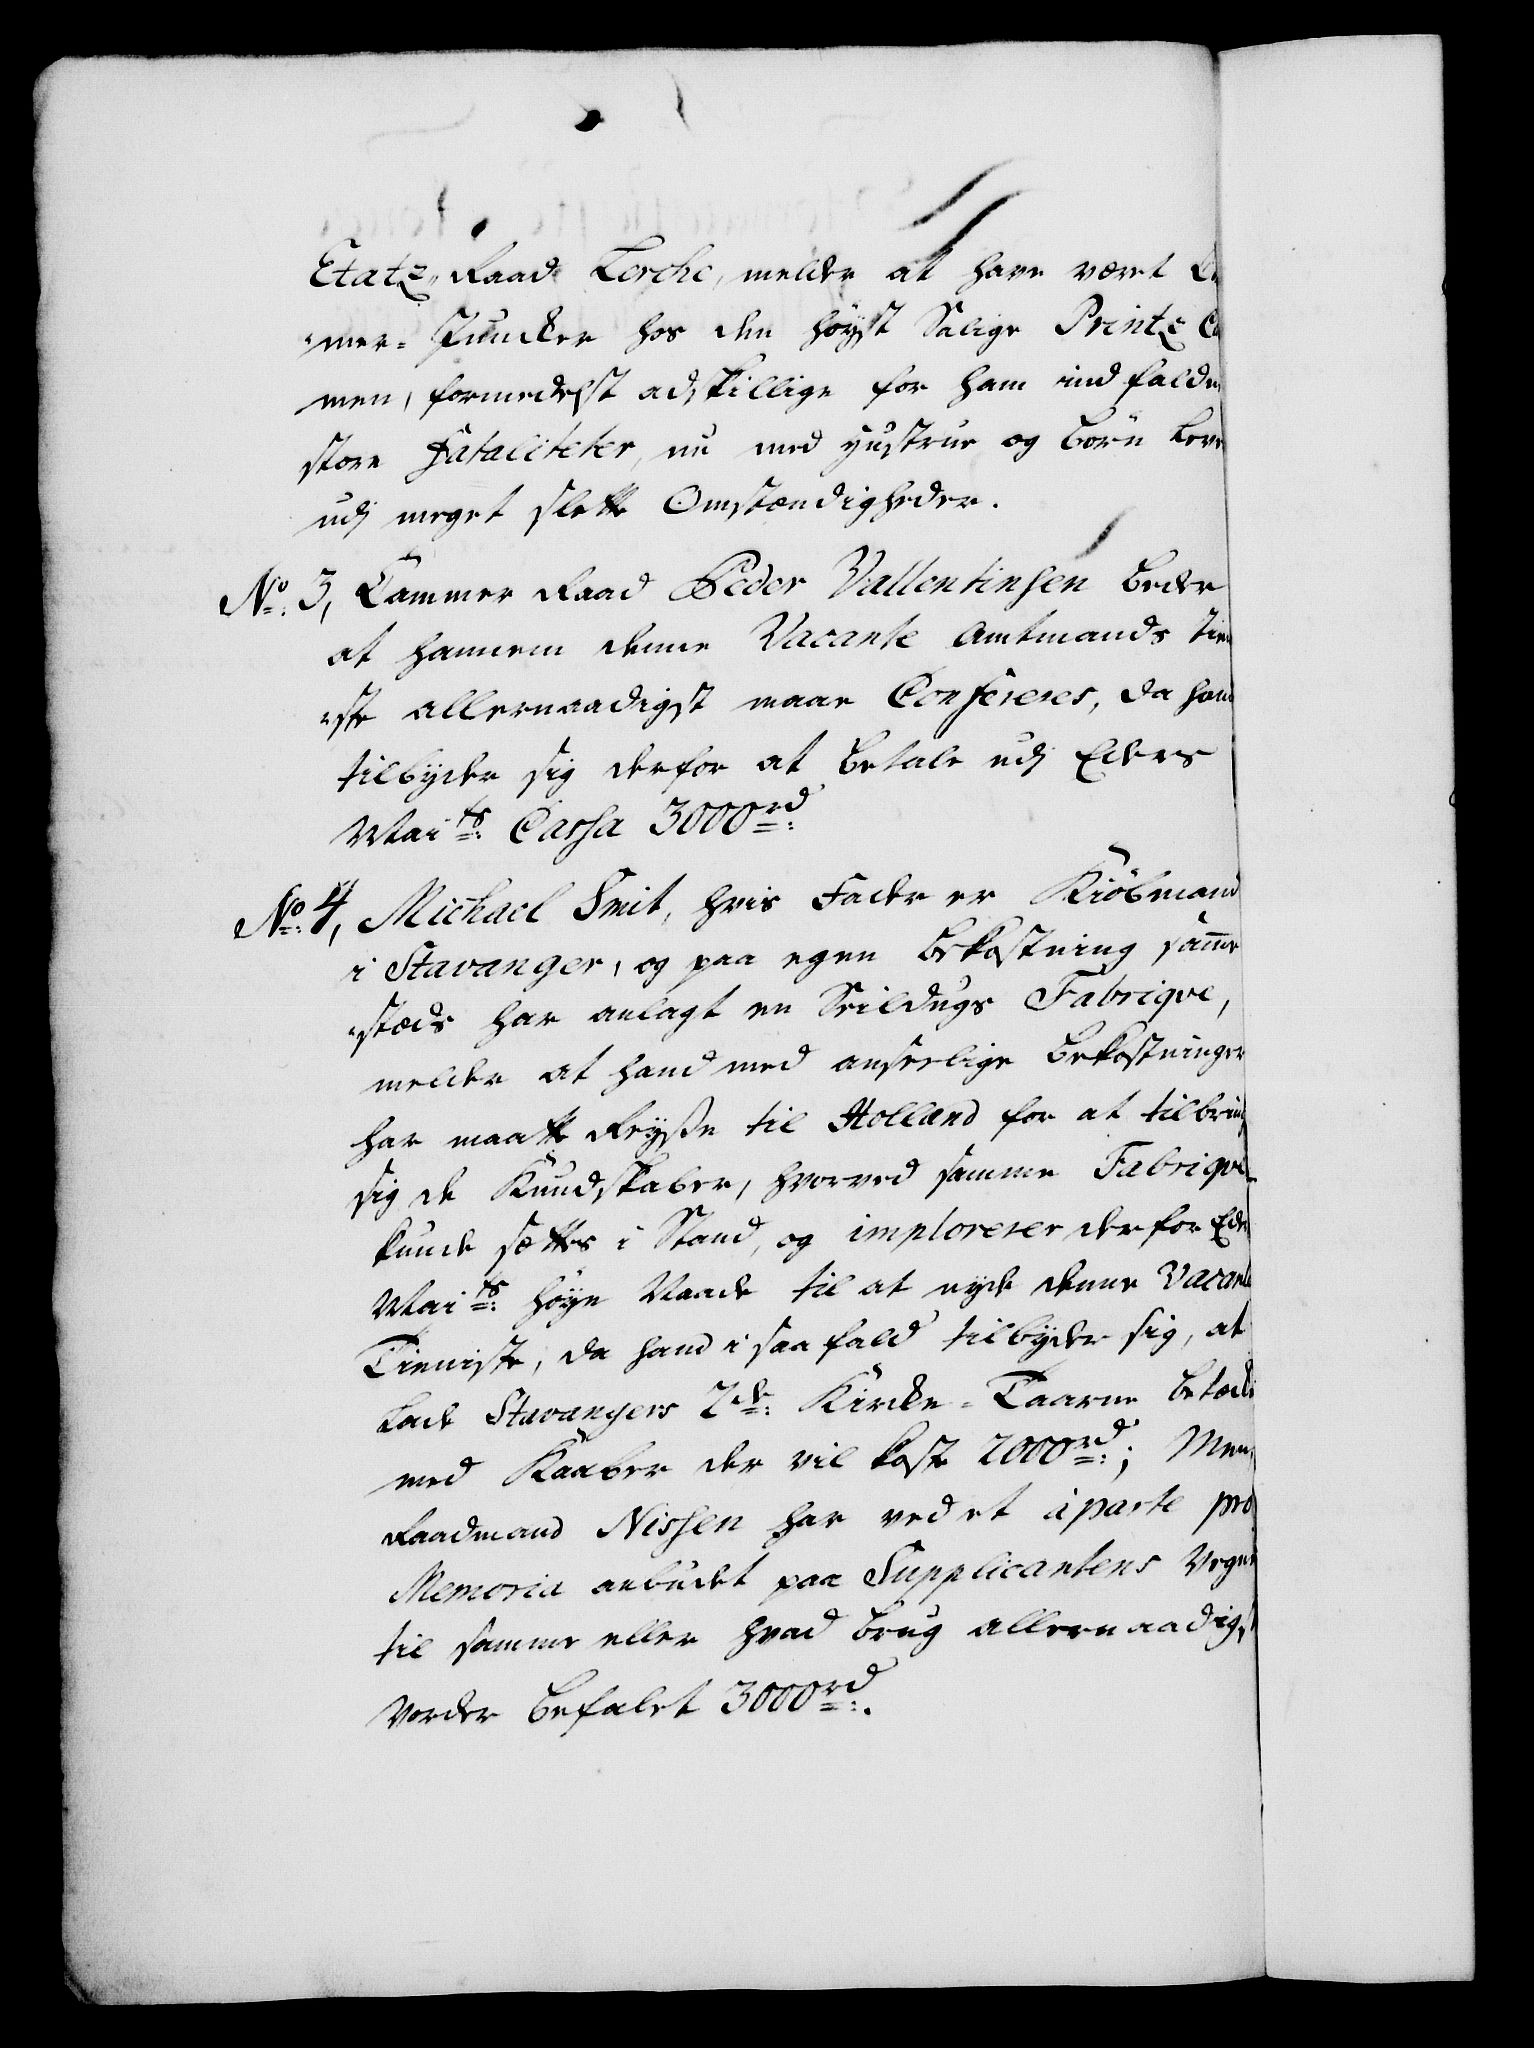 Etatz-Raad Lerche, melder at have været Ca
mer-Juncker hos den høyst Salige Printz Ca
men, formedelst adskillige for ham ind falden
store Fataliteter, nu med Hustrue og børn leve
udj meget slette Omstændigheder.
No: 3, Cammer Raad Peder Vallentinsen beder
at hannem denne Vacante Amtmands Tien
ste allernaadigst maae Confereres, da hand
tilbyder sig derfor at betale udj Eders
Maits: Cassa 3000rd:
No: 4, Michael Smit, hvis Fader er Kiöbmand
i Stavanger, og paa egen bekostning samme
stæds har anlagt en Seildugs Fabrique,
melder at hand med anseelige bekostninger
har maatte Reyse til Holland for at tilbring
sig de Kundskaber, hvorved samme Fabriqve
kunde sættes i Stand, og imploreres derfor Ede
Maits: høye Naade til at nyde denne Vacante
Tieniste, da hand i saa fald tilbyder sig, at
lade Stavangers 2de: Kircke-Taarne betæcke
med Kaaber der vil koste 2000rd:; Men
Raadmand Nissen har ved et aparte pro
Memoria anbudet paa Supplicantens Vegne
til samme eller hvad brug allernaadigst
Vorder befalet 3000rd:.